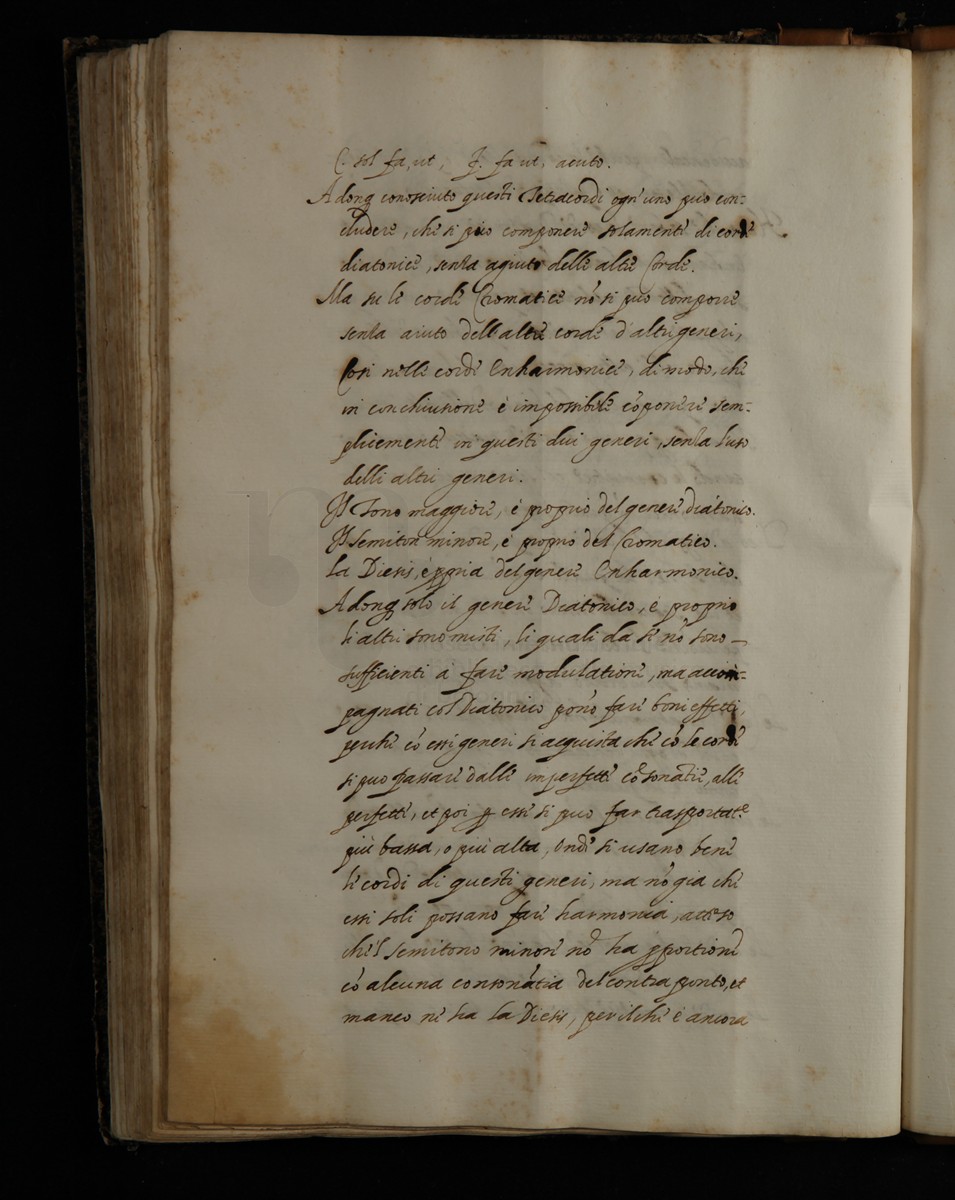 C. sol fa, ut, F. fa ut, acuto.
Adonq conosciuto questi Tetracordi ogn'uno può con:
cludere, che si può componere solamente di corde
diatonice, senza agiuto delle altre Corde.
Ma su le corde Cromatice nõ si può comporre
senza aiuto dell'altre corde d'altri generi,
Cosi nelle corde Enharmonice, di modo, che
in conchiusione è impossibile cõponere sem:
plicemente in questi dui generi, senza l'uso
delli altri generi.
Il Tono maggiore, è proprio del genere diatonico.
Il Semiton minore, è proprio del Cromatico.
La Diesis, è ppria del genere Enharmonico.
Adonq solo il genere Diatonico, è proprio
li altri sono misti, li quali da sè nõ sono
sufficienti à fare modulatione, ma accom=
pagnati col Diatonico ponõ fare boni effetti,
perche cõ essi generi si acquista che cõ le corde
si può passare dalle imperfette cõsonãtie, alle
perfette, et poi p essi si può far trasportat.e
più bassa, o più alta, Onde si usano bene
le corde di questi generi, ma nõ gia che
essi soli possano fare harmonia, atteso
che'l semitono minore nõ ha pportione
cõ alcuna consonãtia del contraponto, et
manco ne ha la Diesis, per il che è ancora